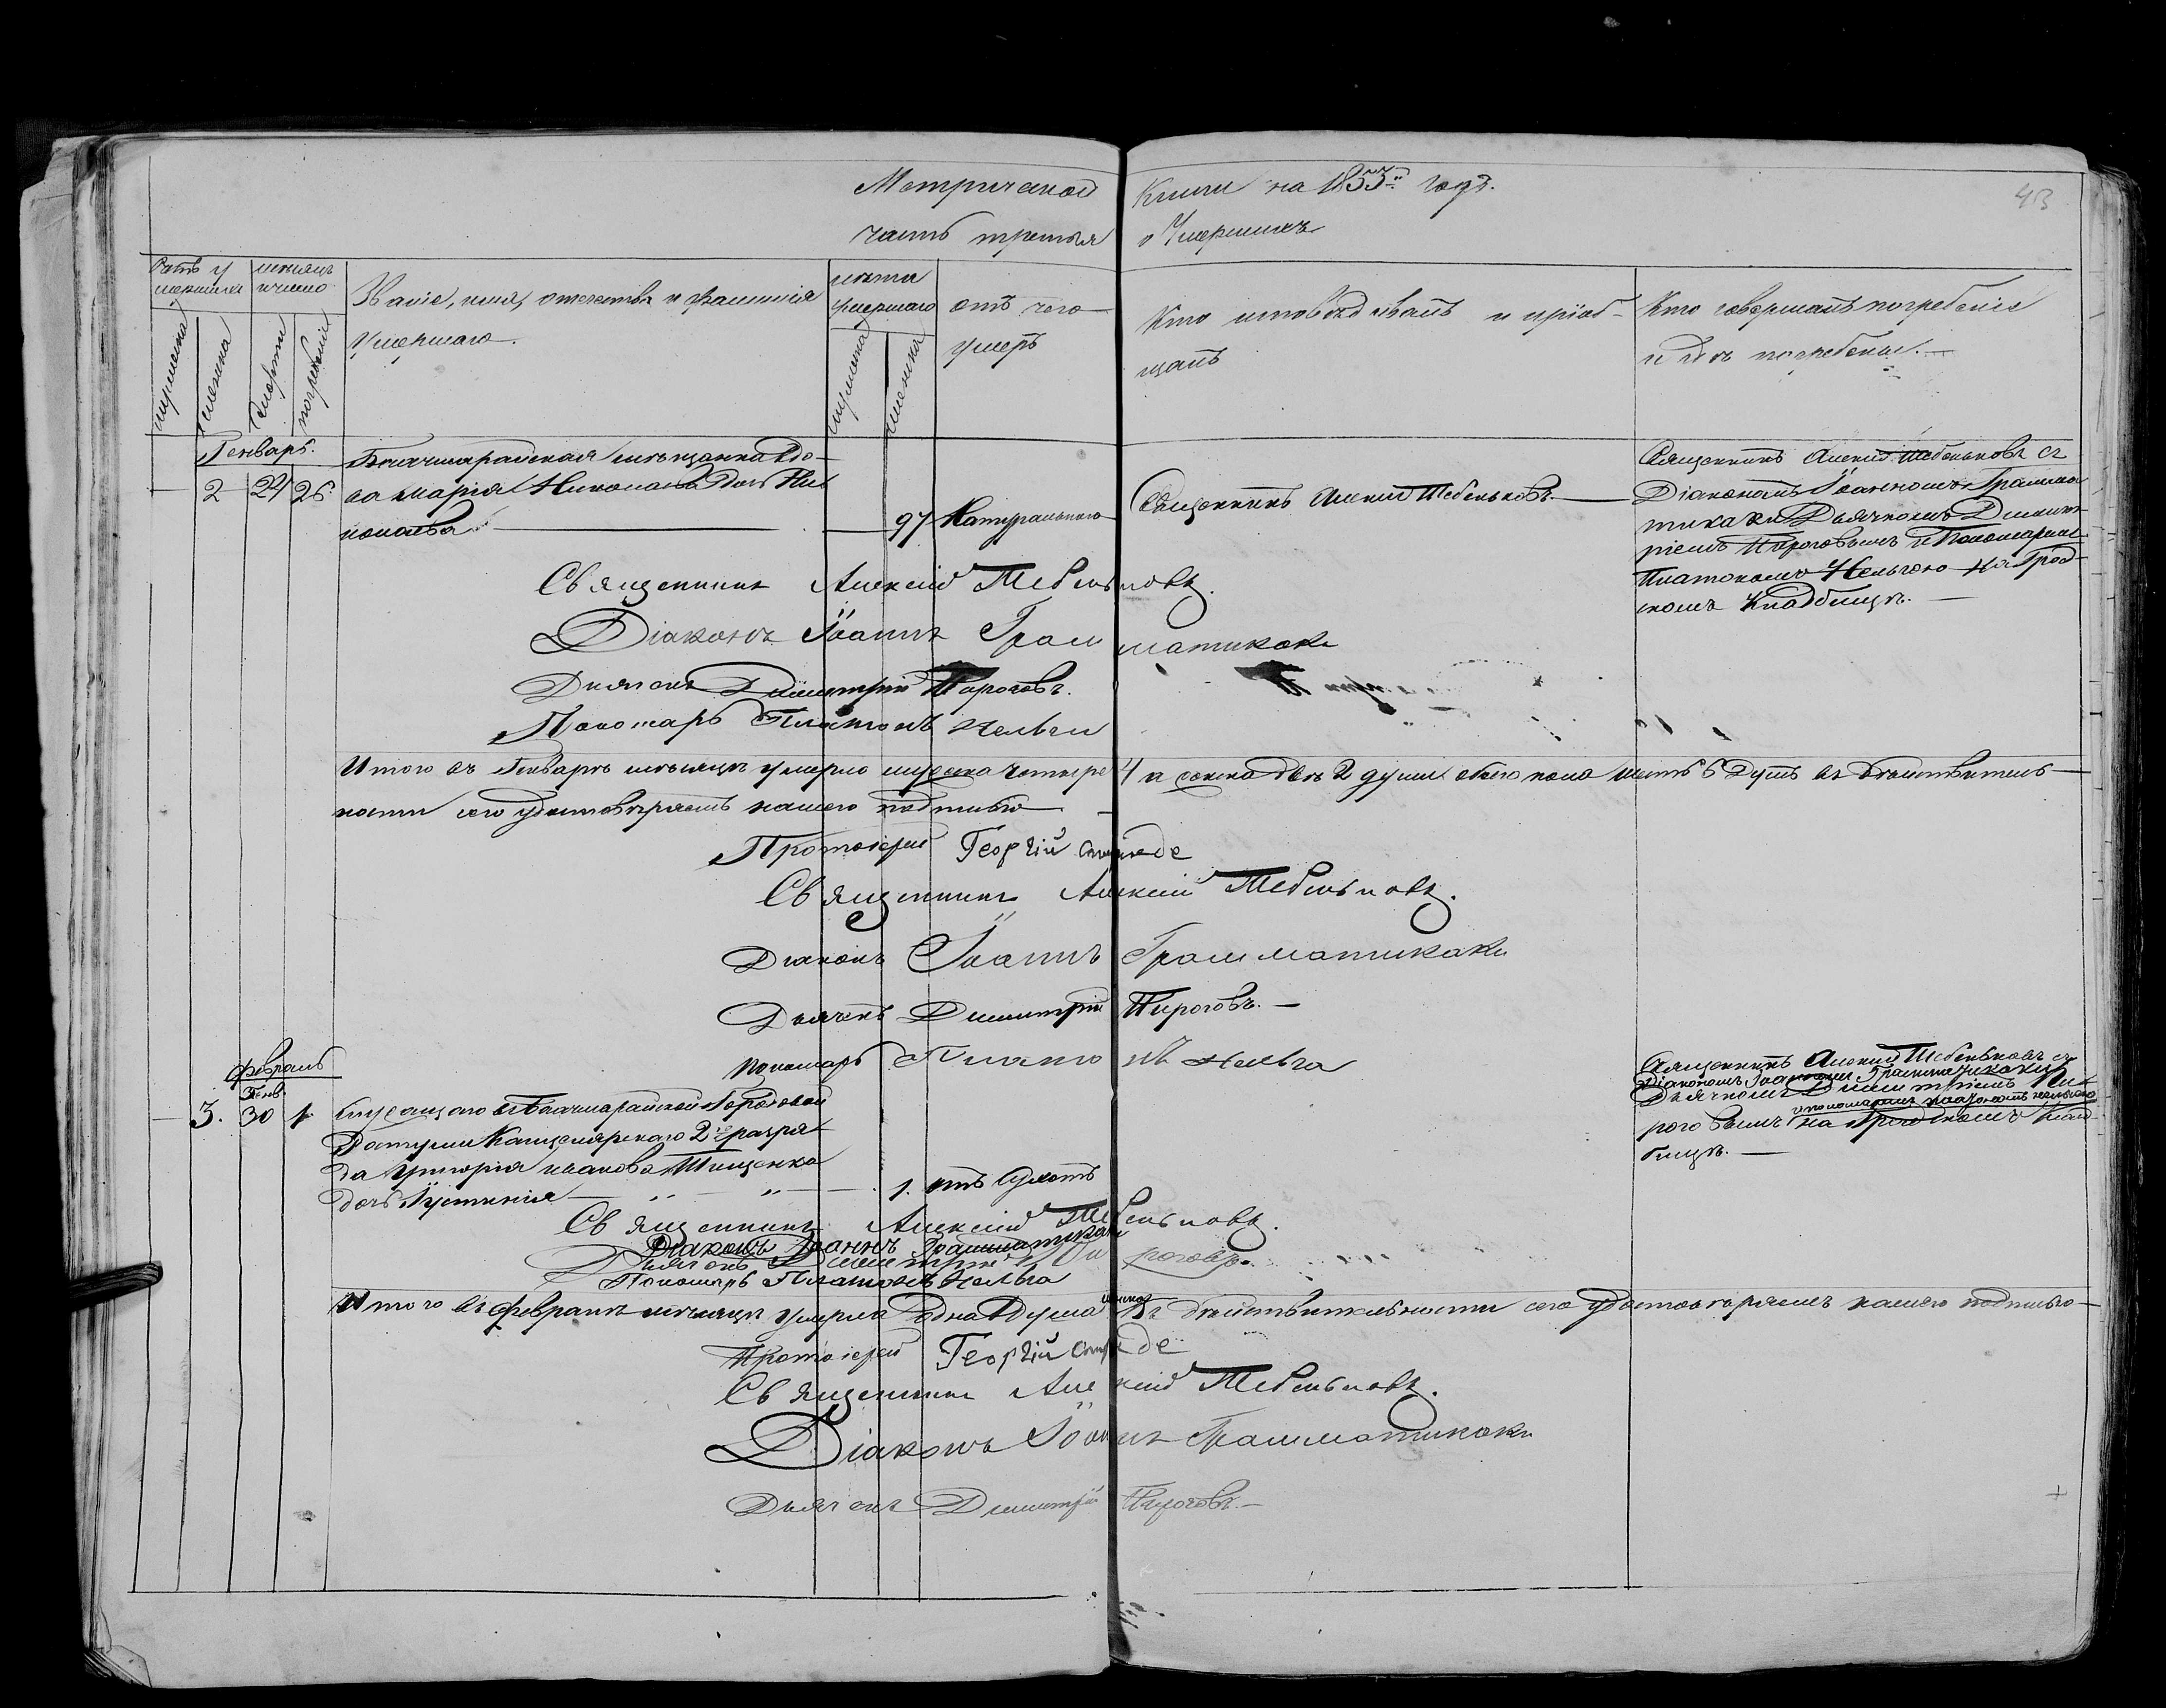 Метрической Книги на 1855й годъ.
43
часть третья о Умершихъ
Счетъ умершихъ
мужеска
женска
месяцъ и число
смерти
погребенія
Званіе, имя, отечество и фамилія
умершаго.
лета умершаго
мужеска
женска
отъ чего
умеръ
Кто исповедывалъ и пріоб-
щалъ
Кто совершалъ погребеніе
и где погребены.
Генварь.
2 24 26
мещанка Вдо-
ва Марія Николаева
97 Натурального
Священникъ Алексій Шебеньковъ.
Священникъ Алексій Шебеньковъ съ
Діакономъ Іоанномъ Грамма-
тикаки Дьячкомъ Димит-
ріемъ Пироговымъ и Пономаремъ
Платономъ Нельгою на Град-
скомъ Кладбище.
Священникъ Алексій Шебеньковъ.
Діаконъ Іоаннъ Грамматикаки
Дьячекъ Димитрій Пироговъ.
Пономарь Платонъ Нельги
Итого въ Генваре месяце умерло мужеска четыре 4 а женска две 2 души обоего пола шесть 6 душъ въ действитель-
ности сего удостоверяемъ нашею подписью
Протоіерей Георгій
Священникъ Алексій Шебеньковъ.
Діаконъ Іоаннъ Грамматикаки
Дьячекъ Димитрій Пироговъ.
Пономарь Платонъ Нельга
Февраль
Генв.
3. 30 1
Городовой
Ратуши Канцелярскаго 2го разря-
да Григорія Иванова Тищенка
дочь Іустинія
1. отъ
Священникъ Алексій Шебеньковъ съ
Діакономъ Іоанномъ Грамматикаки
Дьячкомъ Димитріемъ Пи-
и пономаремъ Платономъ Нельгою
роговымъ на Градскомъ Клад-
бище.
Священникъ Алексій Шебеньковъ.
Діаконъ Іоаннъ Грамматикаки
Дьячекъ Димитрій Пироговъ.
Пономарь Платонъ Нельга
Итого въ Феврале месяце умерла одна душа женска въ действительности сего удостоверяемъ нашею подписью
Протоіерей Георгій
Священникъ Алексій Шебеньковъ.
Діаконъ Іоаннъ Грамматикаки
Дьячекъ Димитрій Пироговъ.